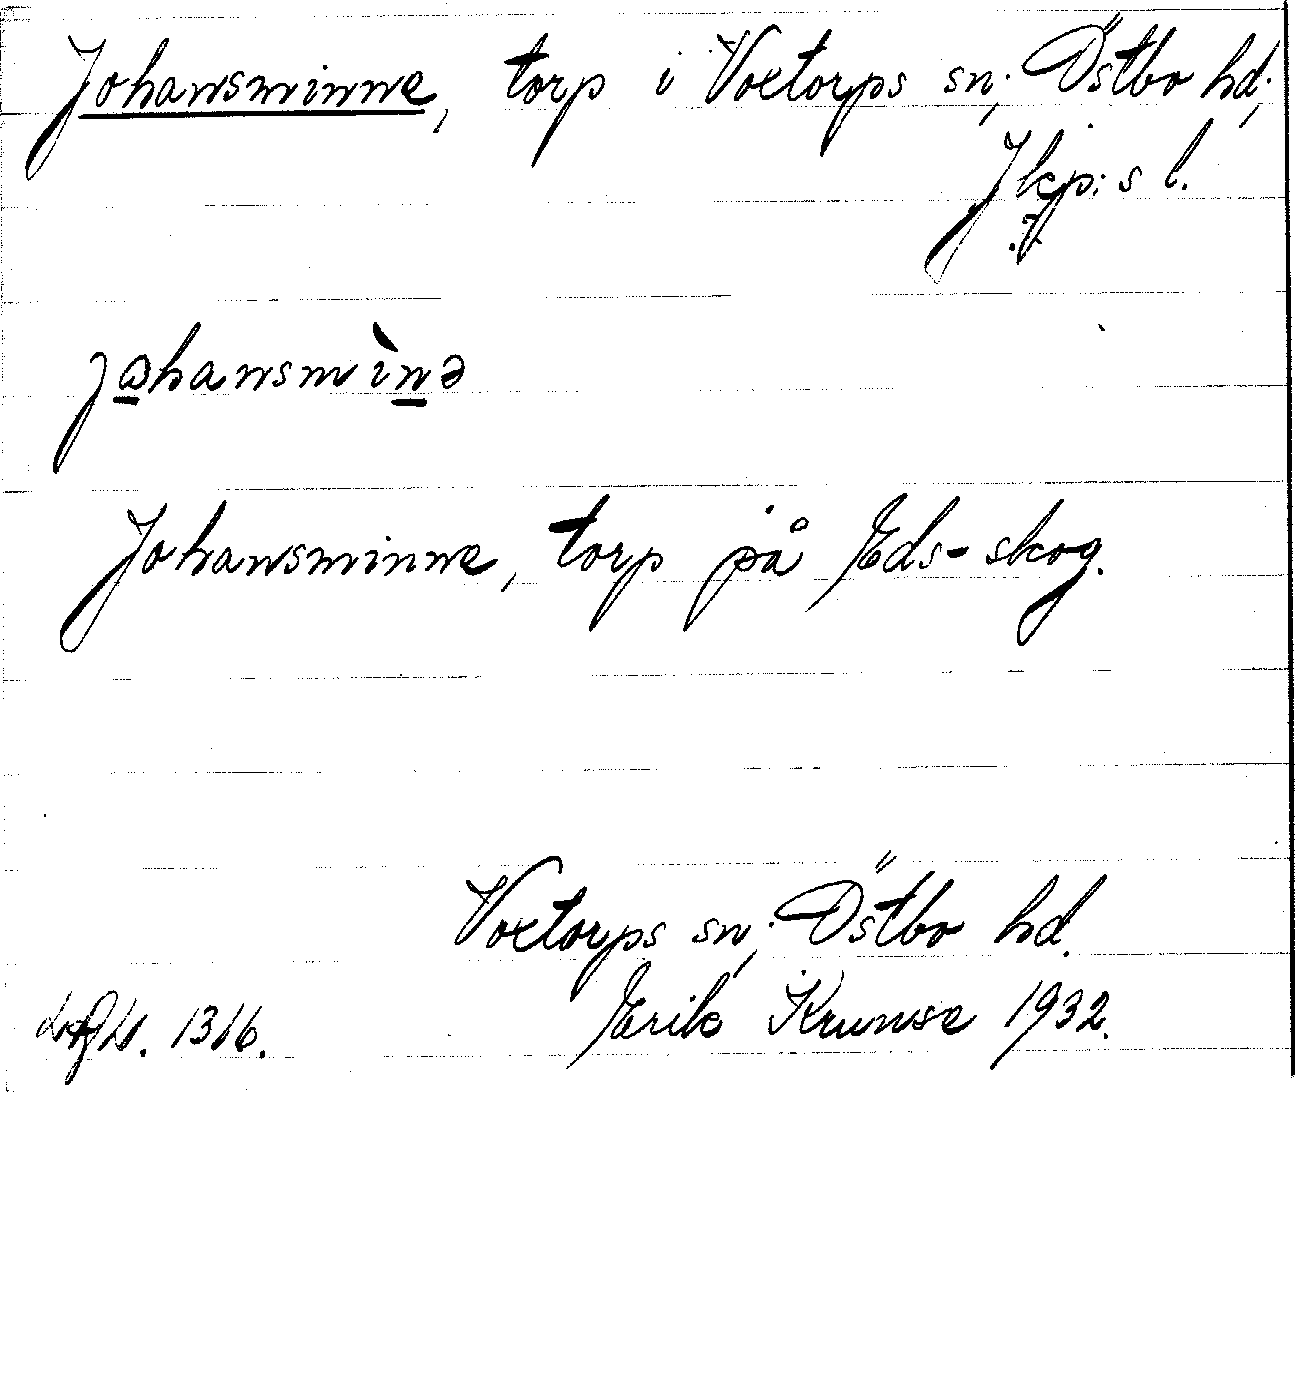 Johansminne, torp i Voxtorps sn; Östbo hd;
Jkp:s l.
johansmìnə
Johansminne, torp på Eds-skog.
Voxtorps sn; Östbo hd.
Erik Krunse 1932.
1316.